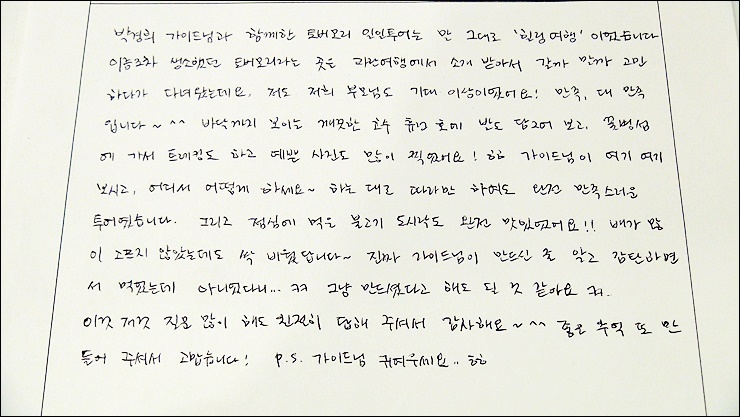 박경희 가이드님과 함께한 토버모리 일일투어는 말 그대로 '힐링여행' 이었습니다
이름조차 생소했던 토버모리라는 곳을 관광여행에서 소개 받아서 갈까 말까 고민
하다가 다녀왔는데요, 저도 저희 부모님도 기대 이상이었어요! 만족, 대 만족
입니다~ ^^ 바닥까지 보이는 깨끗한 호수 휴런 호에 발도 담그어 보고, 꽃병섬
에 가서 트레킹도 하고 예쁜 사진도 많이 찍었어요! ㅎㅎ 가이드님이 여기 여기
보시고, 여기서 어떻게 하세요~ 하는 대로 따라만 하여도 완전 만족스러운
투어였습니다. 그리고 점심에 먹은 불고기 도시락도 완전 맛있었어요!! 배가 많
이 고프지 않았는데도 싹 비웠답니다~ 진짜 가이드님이 만드신 줄 알고 감탄하면
서 먹었는데 아니었다니... ㅋㅋ 그냥 만드셨다고 해도 될 것 같아요 ㅋㅋ.
이것 저것 질문 많이 해도 친절히 답해 주셔서 감사해요~ ^^ 좋은 추억 또 만
들어 주셔서 고맙습니다! p.s. 가이드님 귀여우세요.. ㅎㅎ